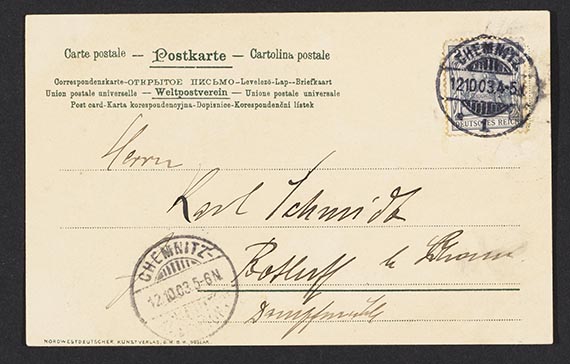 Carte postale — Postkarte — Cartolina postale
Correspondenskarte-ОТКРЫТОЕ ПИСЬМО-Levelező-Lap--Briefkaart
Union postale universelle — Weltpostverein — Unione postale universale
Post card-Karta korespondencyjna-Dopisnice-Korespondenční lístek
CHEMNITZ
12.10.03.4-5.N
* 1
DEUTSCHES REICH
Herrn
Karl Schmidt
Rotluff b
CHEMNITZ-
12.10.03.5-6N
NORDWESTDEUTSCHER KUNSTVERLAG, G.M.B.H.